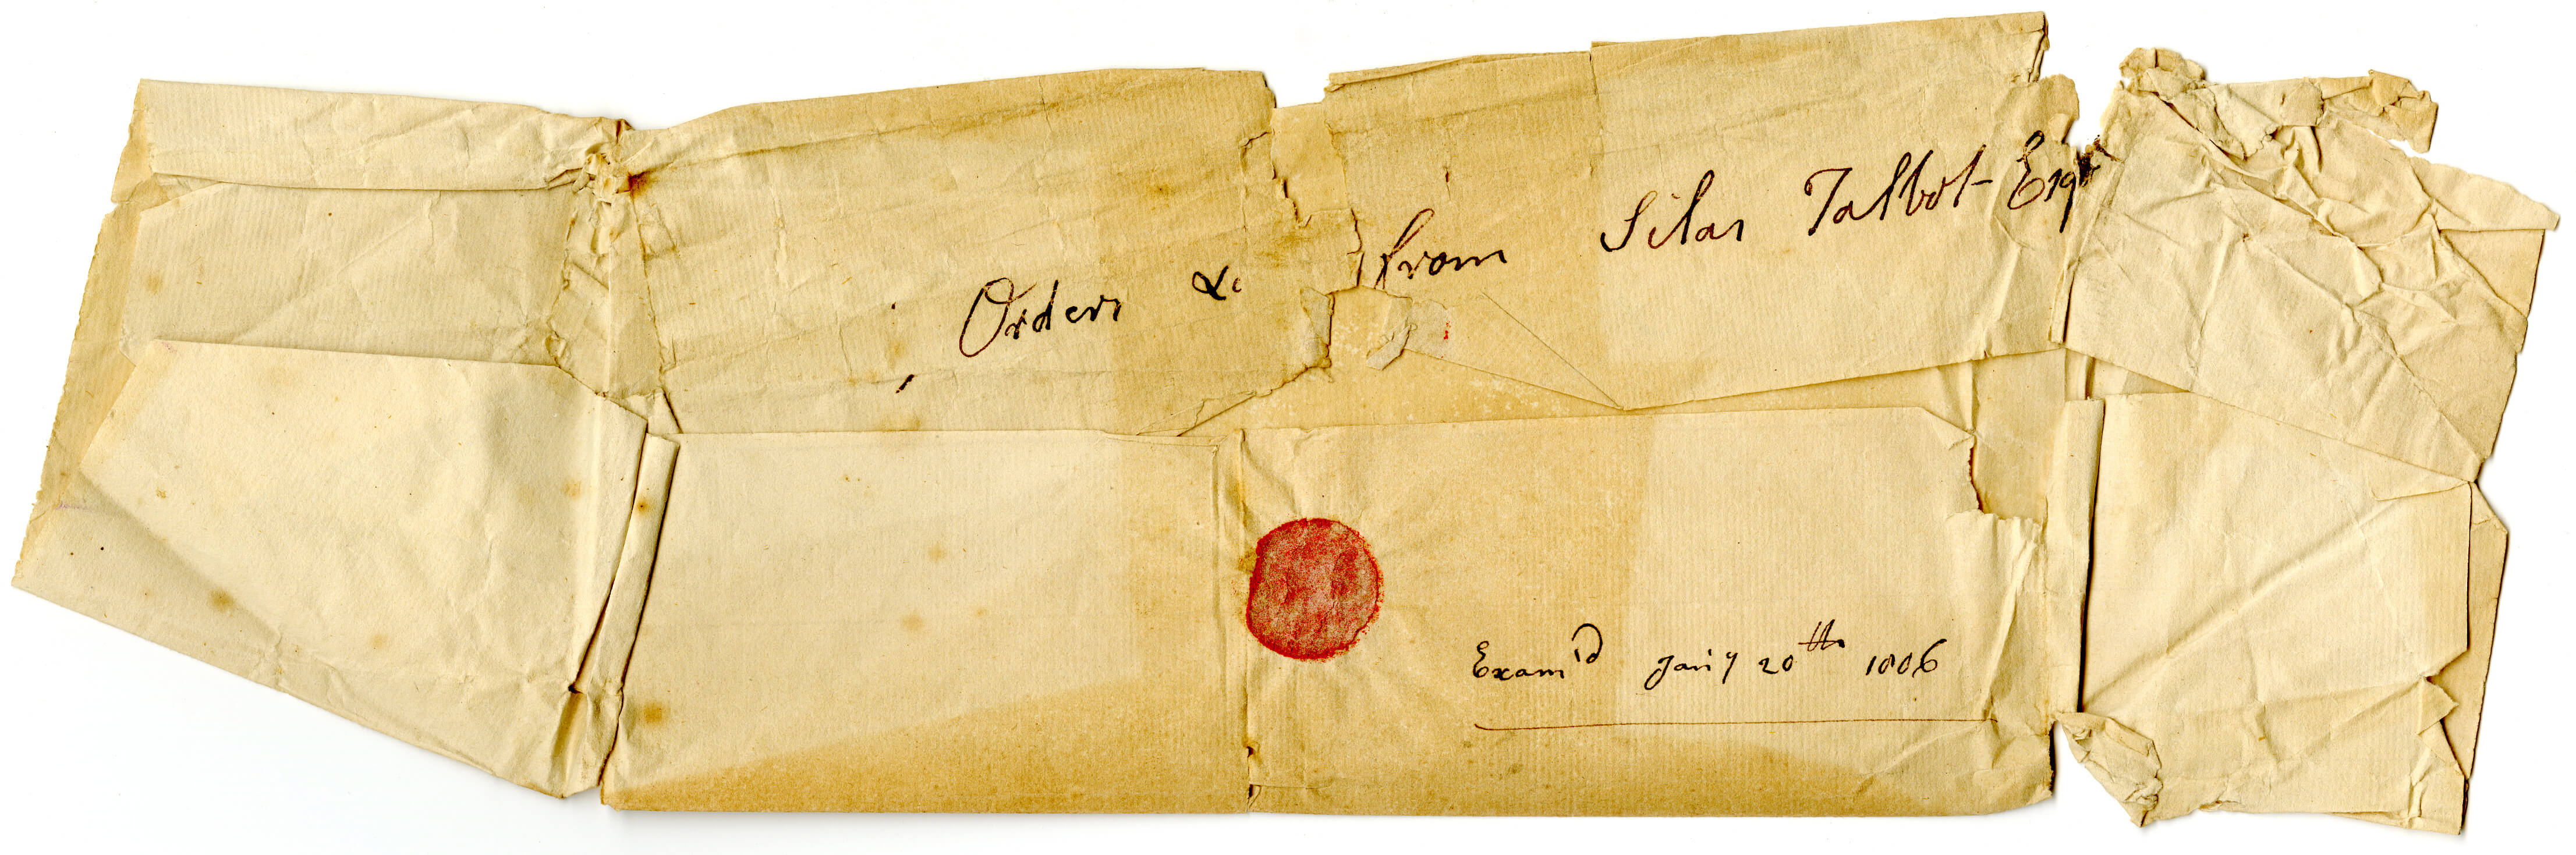 Orders &c from Silas Talbot Esqr
Exam'd Jan'y 20th 1806